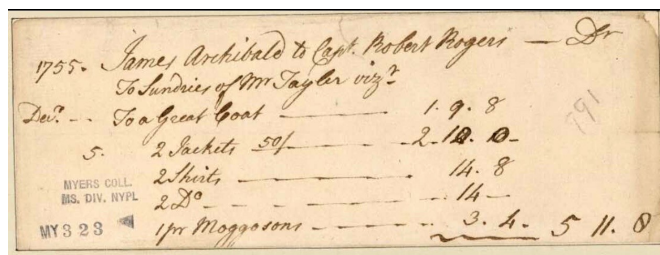 1755. James Archibald to Capt. Robert Rogers — Dr
To Sundries of Mr Tayler vizt
Decr. -- To a Great Coat — 1. 9. 8
5. 2 Jackets 50/ — 2. 10. 0-
2 Shirts — 14. 8
2 Do — 14 —
1 pr Moggosons — 3. 4. 5 11. 8
191
MYERS COLL.
MS. DIV. NYPL
MY 323